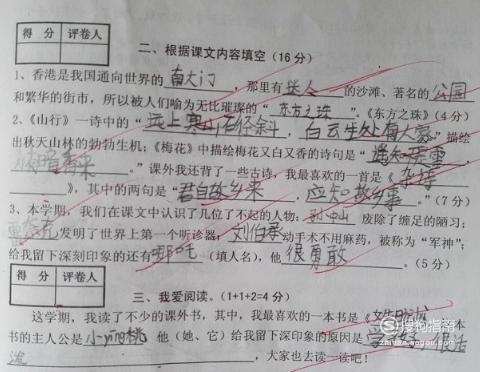 得 分 评卷人
二、根据课文内容填空（16 分）
1、香港是我国通向世界的 南大门 ，那里有 迷人 的沙滩、著名的 公园
和繁华的街市，所以被人们喻为无比璀璨的“ 东方之珠 ”。《东方之珠》（4 分）
2、《山行》一诗中的“ 远上寒山石径斜 ， 白云生处有人家 ”描绘
出秋天山林的勃勃生机；《梅花》中描绘梅花又白又香的诗句是“ 遥知 ，
暗香来 。”课外我还背了一些古诗，我最喜欢的一首是《 杂诗
》，其中的两句是“ 君自故乡来 ， 应知故乡事 。”（7 分）
3、本学期，我们在课文中认识了几位了不起的人物： 孙中山 废除了缠足的陋习；
发明了世界上第一个听诊器； 刘伯承 动手术不用麻药，被称为“军神”；
给我留下深刻印象的还有 哪吒 （填人名），他 很勇敢 。（5 分）
得 分 评卷人
三、我爱阅读。（1+1+2=4 分）
这学期，我读了不少的课外书，其中，我最喜欢的一本书是《 本
书的主人公是 小 桃 他（她、它）给我留下深印象的原因是
，大家也去读一读吧！
搜狗指南